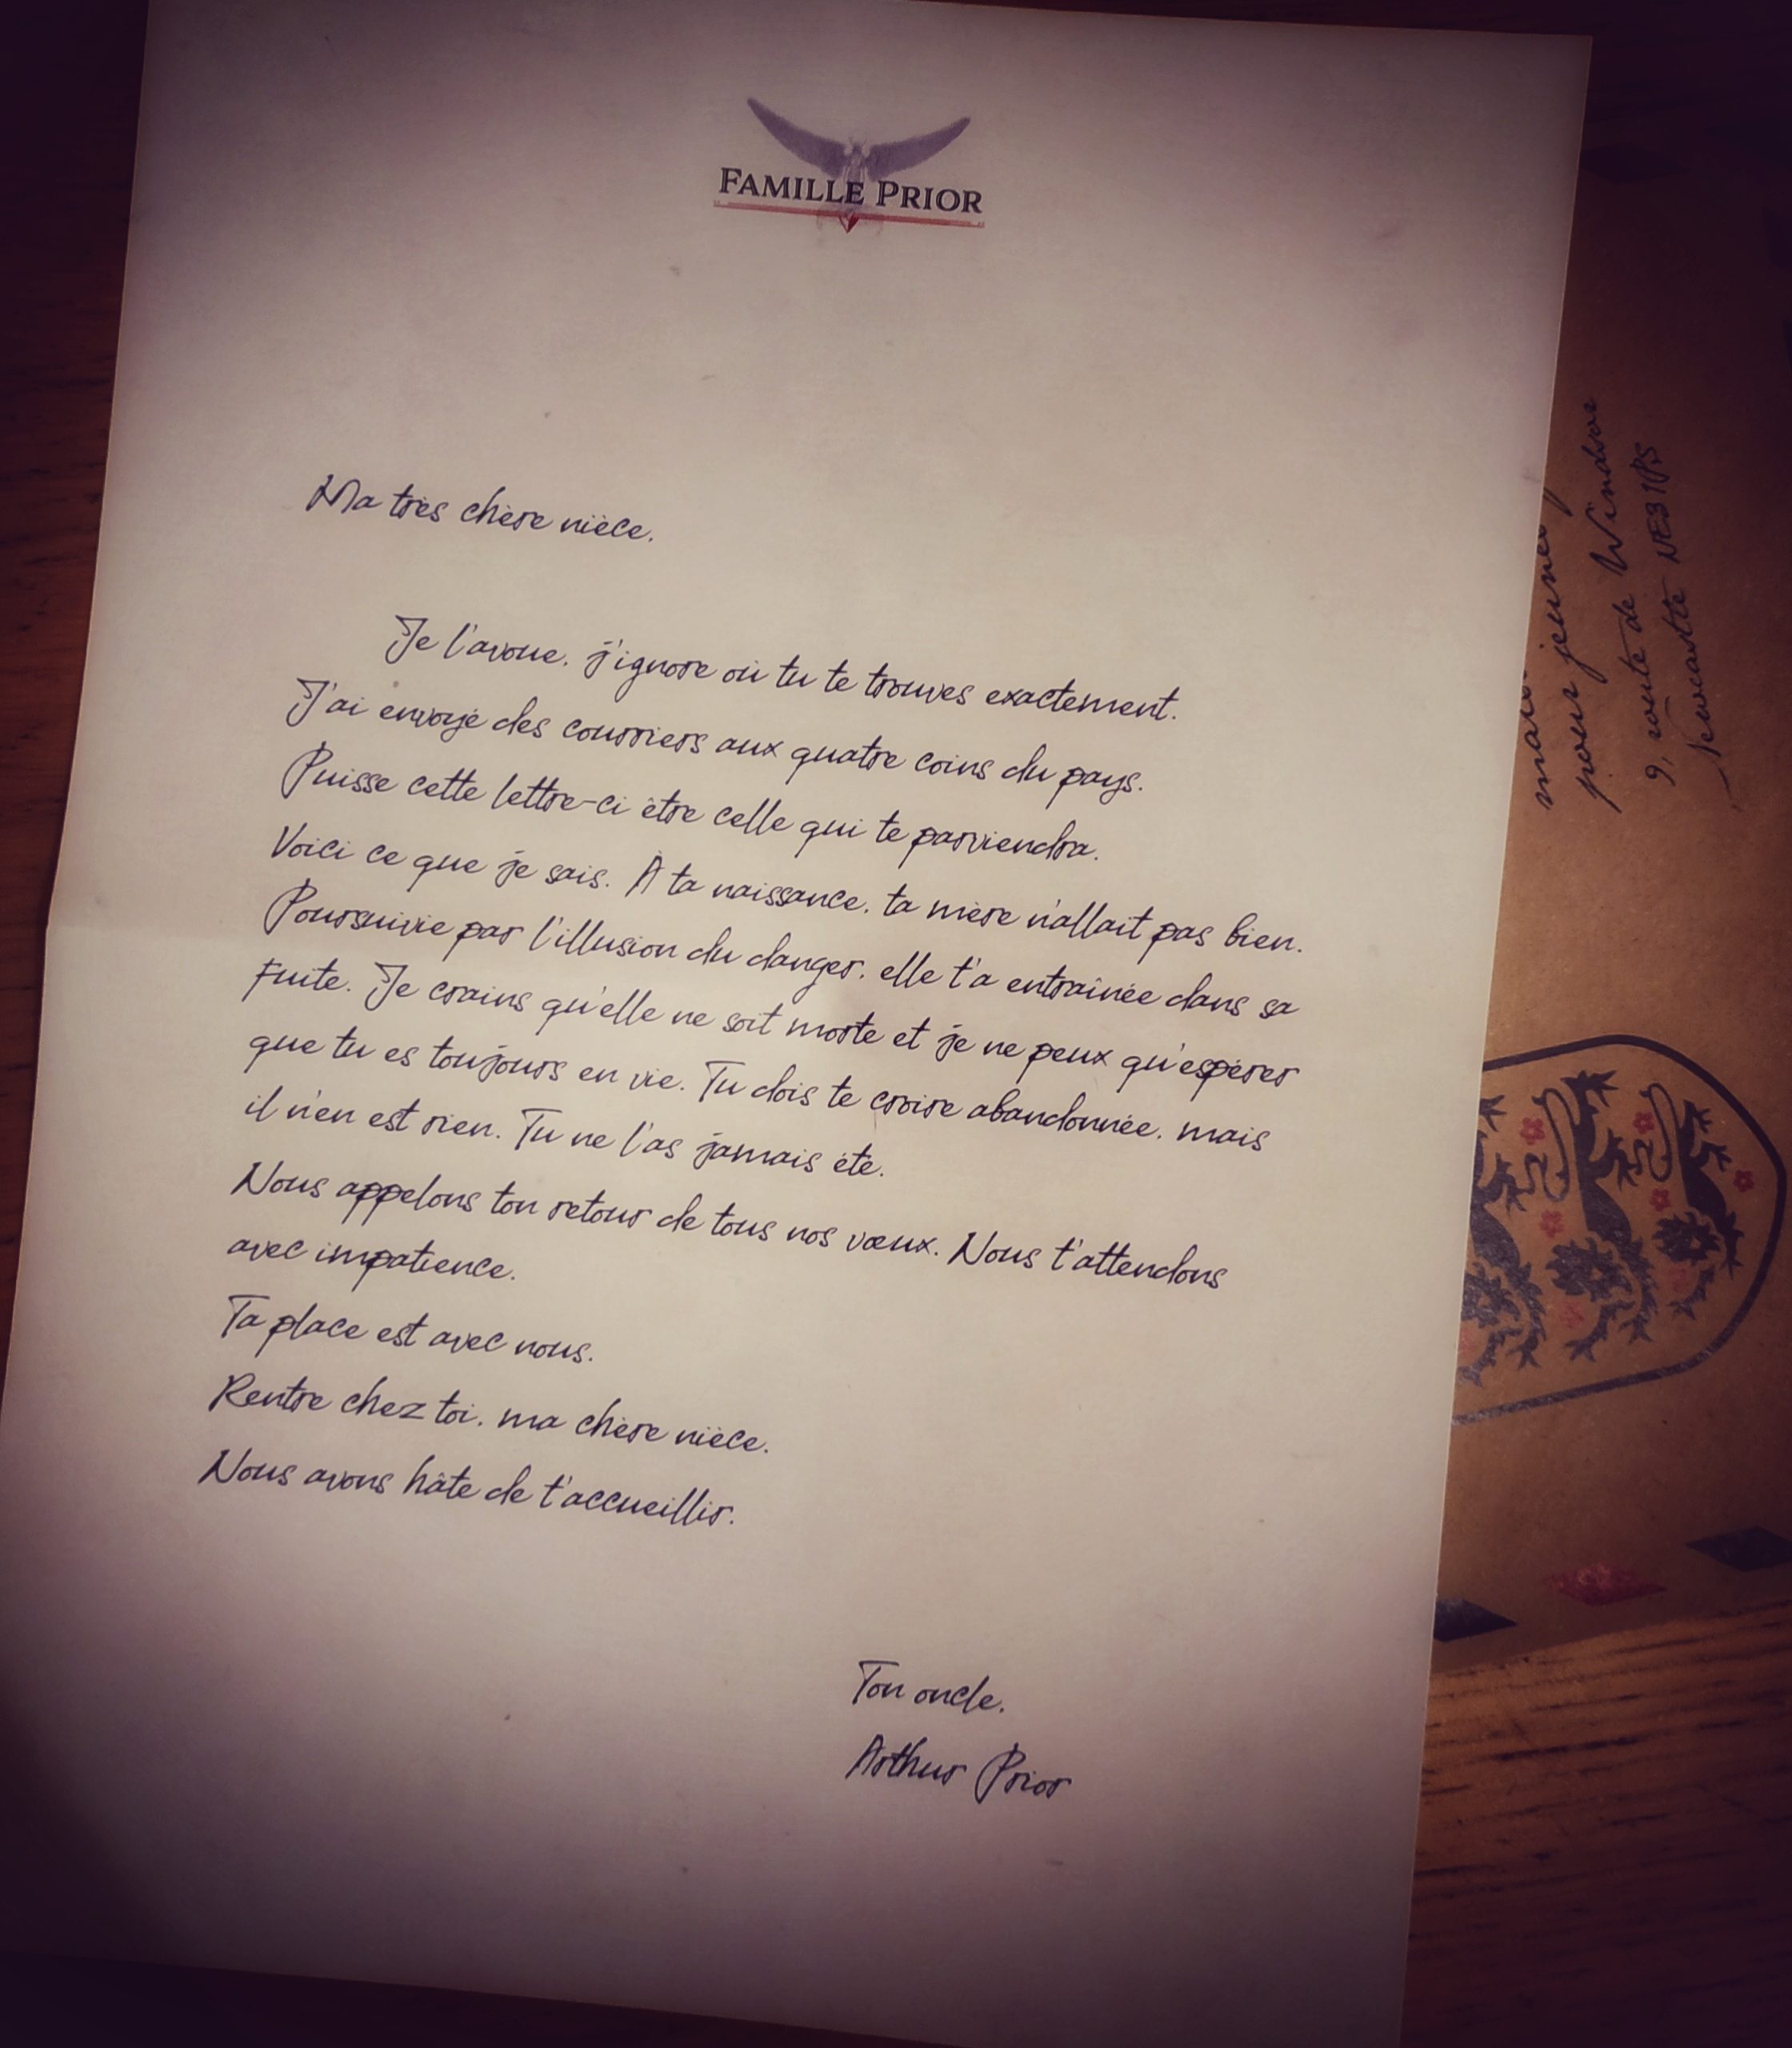 FAMILLE PRIOR
Ma très chère nièce,
Je l'avoue, j'ignore où tu te trouves exactement.
J'ai envoyé des courriers aux quatre coins du pays.
Puisse cette lettre-ci être celle qui te parviendra.
Voici ce que je sais. À ta naissance, ta mère n'allait pas bien.
Poursuivie par l'illusion du danger, elle t'a entraînée dans sa
fuite. Je crains qu'elle ne soit morte et je ne peux qu'espérer
que tu es toujours en vie. Tu dois te croire abandonnée, mais
il n'en est rien. Tu ne l'as jamais été.
Nous appelons ton retour de tous nos vœux. Nous t'attendons
avec impatience.
Ta place est avec nous.
Rentre chez toi, ma chère nièce.
Nous avons hâte de t'accueillir.
Ton oncle,
Arthur Prior
pour jeunes
pour de Windsor
9, route de
Newcastle NE3 1PS